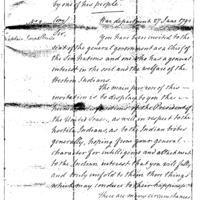 by one of his people.
War department 27 June 1792
Sir,
You have been invited to the
seat of the general government as a Chief of
the Six Nations and one who has a general
interest in the and the welfare of the
Western Indians.
The main purpose of this
invitation is to display to you the
of the President of
the United States, as well in respect to the
hostile Indians, as to the Indian tribes
generally, hoping from your general
character for intelligence and attachment
to the Indian interest that you will fully
and truly unfold to them those things
which may conduce to their happiness.
There are many circumstances